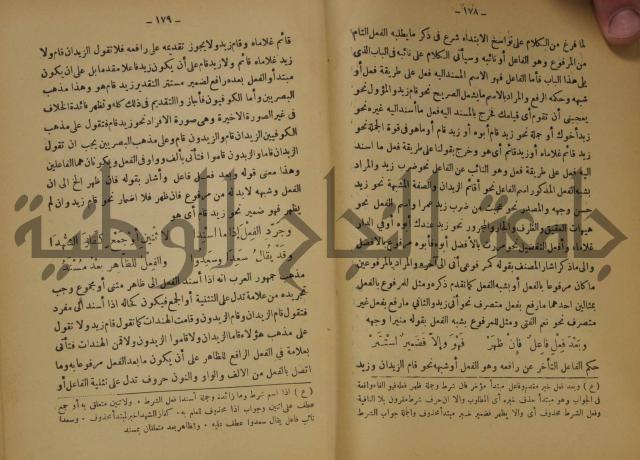 — ١٧٨ —
لما فرغ من الكلام على نواسخ الابتداء شرع فى ذكر ما يطلبه الفعل التام
من المرفوع وهو الفاعل أو نائبه وسيأتى الكلام على نائبه فى الباب الذى
يلى هذا الباب فأما الفاعل فهو الاسم المسند اليه فعل على طريقة فعل أو
شبهه وحكمه الرفع والمراد بالاسم ما يشمل الصريح نحو قام زيد والمؤول نحو
يعجبنى أن تقوم أى قيامك فخرج بالمسند اليه فعل ما أسند اليه غيره نحو
زيد أخوك أو جملة نحو زيد قام أبوه أو زيد قام أو ما هو فى قوة الجملة نحو
زيد قائم غلامه أو زيد قائم أى هو وخرج بقولنا على طريقة فعل ما أسند
اليه فعل على طريقة فعل وهو النائب عن الفاعل نحو ضرب زيد والمراد
بشبه الفعل المذكور اسم الفاعل نحو أقائم الزيدان والصفة المشبهة نحو زيد
حسن وجهه والمصدر نحو عجبت من ضرب زيد عمرا واسم الفعل نحو
هيهات العقيق والظرف والجار والمجرور نحو زيد عندك أبوه أو فى الدار
غلاماه وأفعل التفضيل نحو مررت بالأفضل أبوه فأبوه مرفوع بالأفضل
والى ما ذكر أشار المصنف بقوله كمرفوعى أتى الى آخره والمراد بالمرفوعين
ما كان مرفوعا بالفعل أو بشبه الفعل كما تقدم ذكره ومثل للمرفوع بالفعل
بمثالين احدهما ما رفع بفعل متصرف نحو أتى زيد والثانى ما رفع بفعل غير
متصرف نحو نعم الفتى ومثل للمرفوع بشبه الفعل بقوله منيرا وجهه
وبعد فعل فاعل فإن ظهر فهو وإلا فضمير استتر
حكم الفاعل التأخر عن رافعه وهو الفعل أو شبهه نحو قام الزيدان وزيد
— ١٧٩ —
قائم غلاماه وقام زيد ولا يجوز تقديمه على رافعه فلا تقول الزيدان قام ولا
زيد غلاماه قائم ولا زيد قام على أن يكون زيد فاعلا مقدما بل على أن يكون
مبتدأ والفعل بعده رافع لضمير مستتر التقدير زيد قام هو وهذا مذهب
البصريين وأما الكوفيون فأجازوا التقديم فى ذلك كله وتظهر فائدة الخلاف
فى غير الصورة الاخيرة وهى صورة الافراد نحو زيد قام فتقول على مذهب
الكوفيين الزيدان قام والزيدون قام وعلى مذهب البصريين يجب ان تقول
الزيدان قاما والزيدون قاموا فتأتى بألف وواو فى الفعل ويكونان هما الفاعلين
وهذا معنى قوله وبعد فعل فاعل وأشار بقوله فان ظهر الخ الى ان
الفعل وشبهه لابد له من مرفوع فان ظهر فلا اضمار نحو قام زيد وان لم
يظهر فهو ضمير نحو زيد قام أى هو
وجرد الفعل إذا ما أسندا لاثنين أو جمع كفاز الشهدا
وقد يقال سعدا وسعدوا والفعل للظاهر بعد مسند
مذهب جمهور العرب انه اذا أسند الفعل الى ظاهر مثنى أو مجموع وجب
تجريده من علامة تدل على التثنية أو الجمع فيكون كحاله اذا أسند الى مفرد
فتقول قام الزيدان وقام الزيدون وقامت الهندات كما تقول قام زيد ولا تقول
على مذهب هؤلاء قاما الزيدان ولا قاموا الزيدون ولا قمن الهندات فتأتى
بعلامة فى الفعل الرافع للظاهر على أن يكون ما بعد الفعل مرفوعا به وما
اتصل بالفعل من الالف والواو والنون حروف تدل على تثنية الفاعل أو